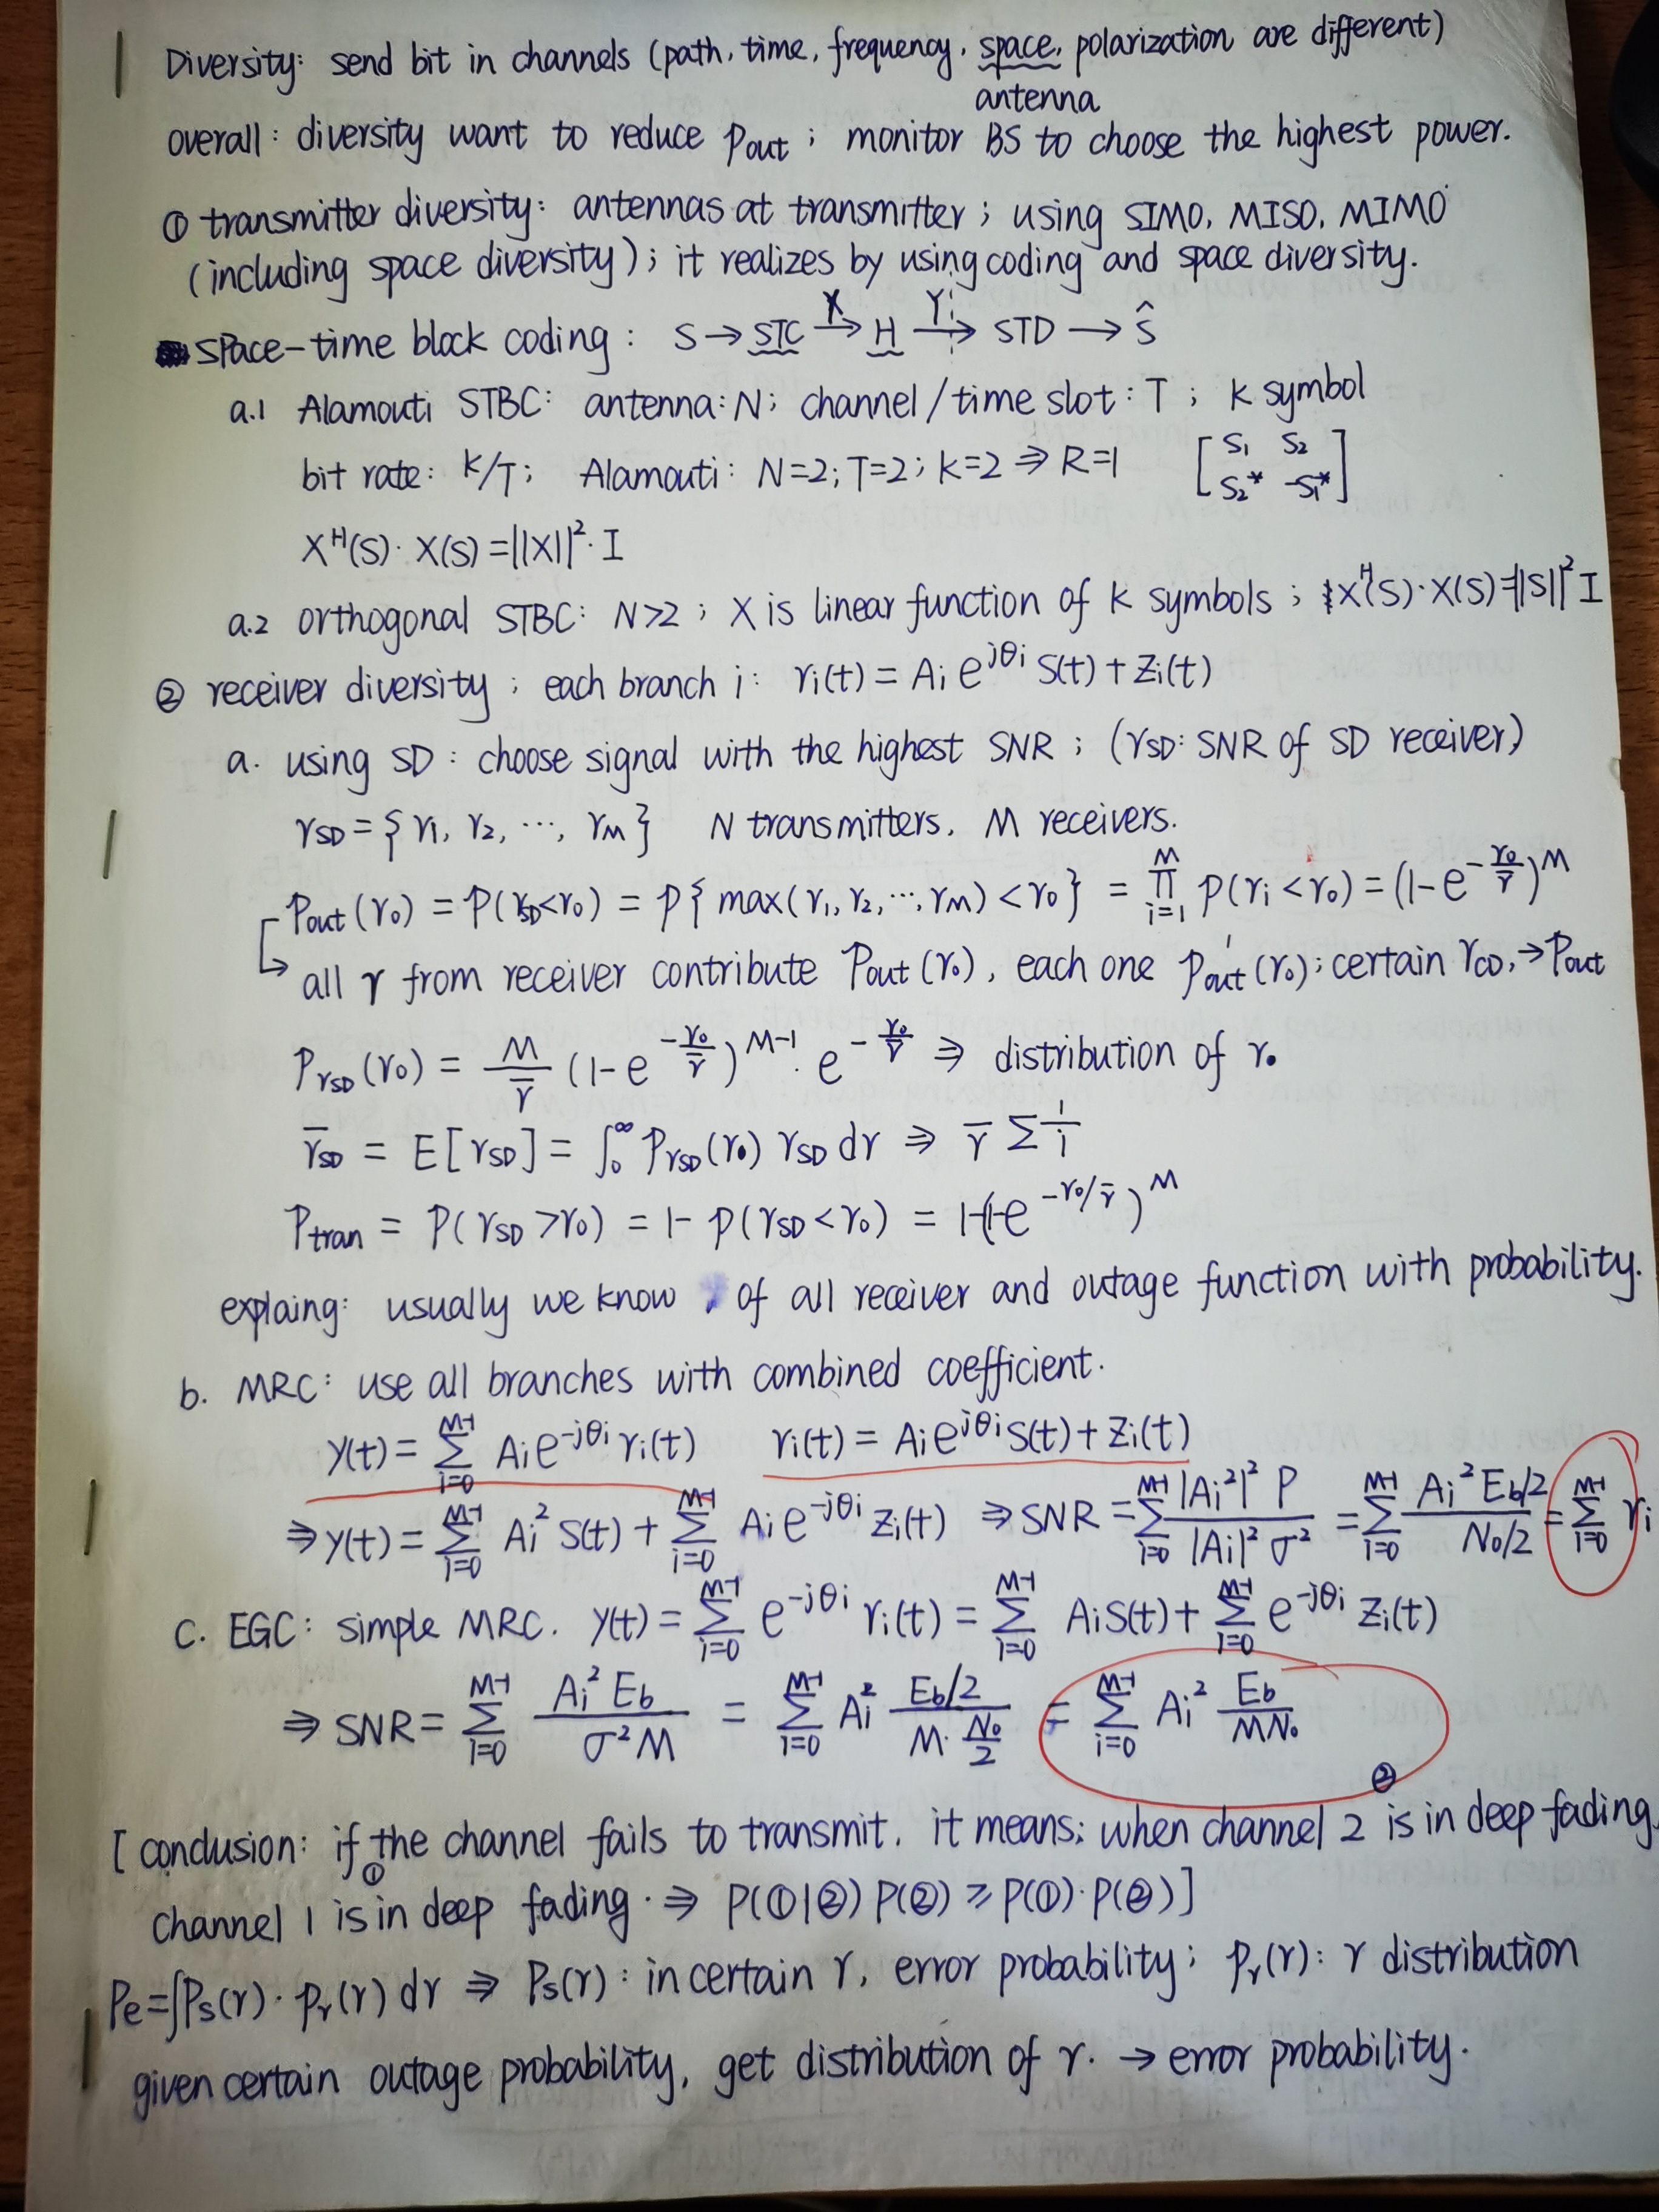 Diversity: send bit in channels (path, time, frequency, space, polarization are different)
antenna
overall: diversity want to reduce Pout; monitor BS to choose the highest power.
① transmitter diversity: antennas at transmitter; using SIMO, MISO, MIMO
(including space diversity); it realizes by using coding and space diversity.
space-time block coding: S → STC –X→ H –Y→ STD → Ŝ
a.1 Alamouti STBC: antenna: N; channel/time slot: T; K symbol
bit rate: K/T; Alamouti: N=2; T=2; K=2 ⇒ R=1 [S₁ S₂
S₂* -S₁*]
Xᴴ(S)·X(S) = ||X||²·I
a.2 orthogonal STBC: N>2; X is linear function of K symbols; Xᴴ(S)·X(S)=||S||² I
② receiver diversity; each branch i: ri(t) = Ai e^{jθi} S(t) + Zi(t)
a. using SD: choose signal with the highest SNR; (γSD: SNR of SD receiver)
γSD = {γ1, γ2, ..., γM} N transmitters. M receivers.
Pout(γ0) = P(γSD<γ0) = P{max(γ1, γ2, ..., γM) < γ0} = ∏_{i=1}^{M} P(γi<γ0) = (1-e^{-γ0/γ̄})^M
↳ all γ from receiver contribute Pout(γ0), each one P'out(γ0); certain γCD, → Pout
PγSD(γ0) = M/γ̄ (1-e^{-γ0/γ̄})^{M-1}·e^{-γ0/γ̄} ⇒ distribution of γ0
γ̄SD = E[γSD] = ∫₀^∞ PγSD(γ0) γSD dγ ⇒ γ̄ Σ 1/i
Ptran = P(γSD>γ0) = 1- P(γSD<γ0) = 1-(1-e^{-γ0/γ̄})^M
explaing: usually we know of all receiver and outage function with probability.
b. MRC: use all branches with combined coefficient.
y(t) = Σ_{i=0}^{M-1} Ai e^{-jθi} ri(t) ri(t) = Ai e^{jθi} S(t) + Zi(t)
⇒ y(t) = Σ_{i=0}^{M-1} Ai² S(t) + Σ_{i=0}^{M-1} Ai e^{-jθi} Zi(t) ⇒ SNR = Σ_{i=0}^{M-1} |Ai²|² P / |Ai|² σ² = Σ_{i=0}^{M-1} Ai² Eb/2 / N0/2 = Σ_{i=0}^{M-1} γi
c. EGC: simple MRC. y(t) = Σ_{i=0}^{M-1} e^{-jθi} ri(t) = Σ_{i=0}^{M-1} Ai S(t) + Σ_{i=0}^{M-1} e^{-jθi} Zi(t)
⇒ SNR = Σ_{i=0}^{M-1} Ai² Eb / σ² M = Σ_{i=0}^{M-1} Ai² Eb/2 / M·N0/2 = Σ_{i=0}^{M-1} Ai² Eb / MN0
②
[conclusion: if the channel fails to transmit. it means: when channel 2 is in deep fading,
①
channel 1 is in deep fading. ⇒ P(①|②) P(②) ≥ P(①)·P(②)]
Pe=∫Ps(γ)·Pγ(γ) dγ ⇒ Ps(γ): in certain γ, error probability; Pγ(γ): γ distribution
given certain outage probability, get distribution of γ. → error probability.